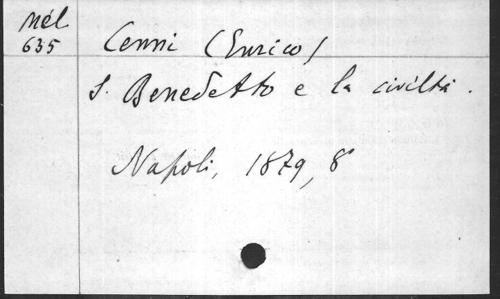 Mél
635
Cenni (Enrico)
S. Benedetto e la civiltà.
Napoli, 1879, 8°